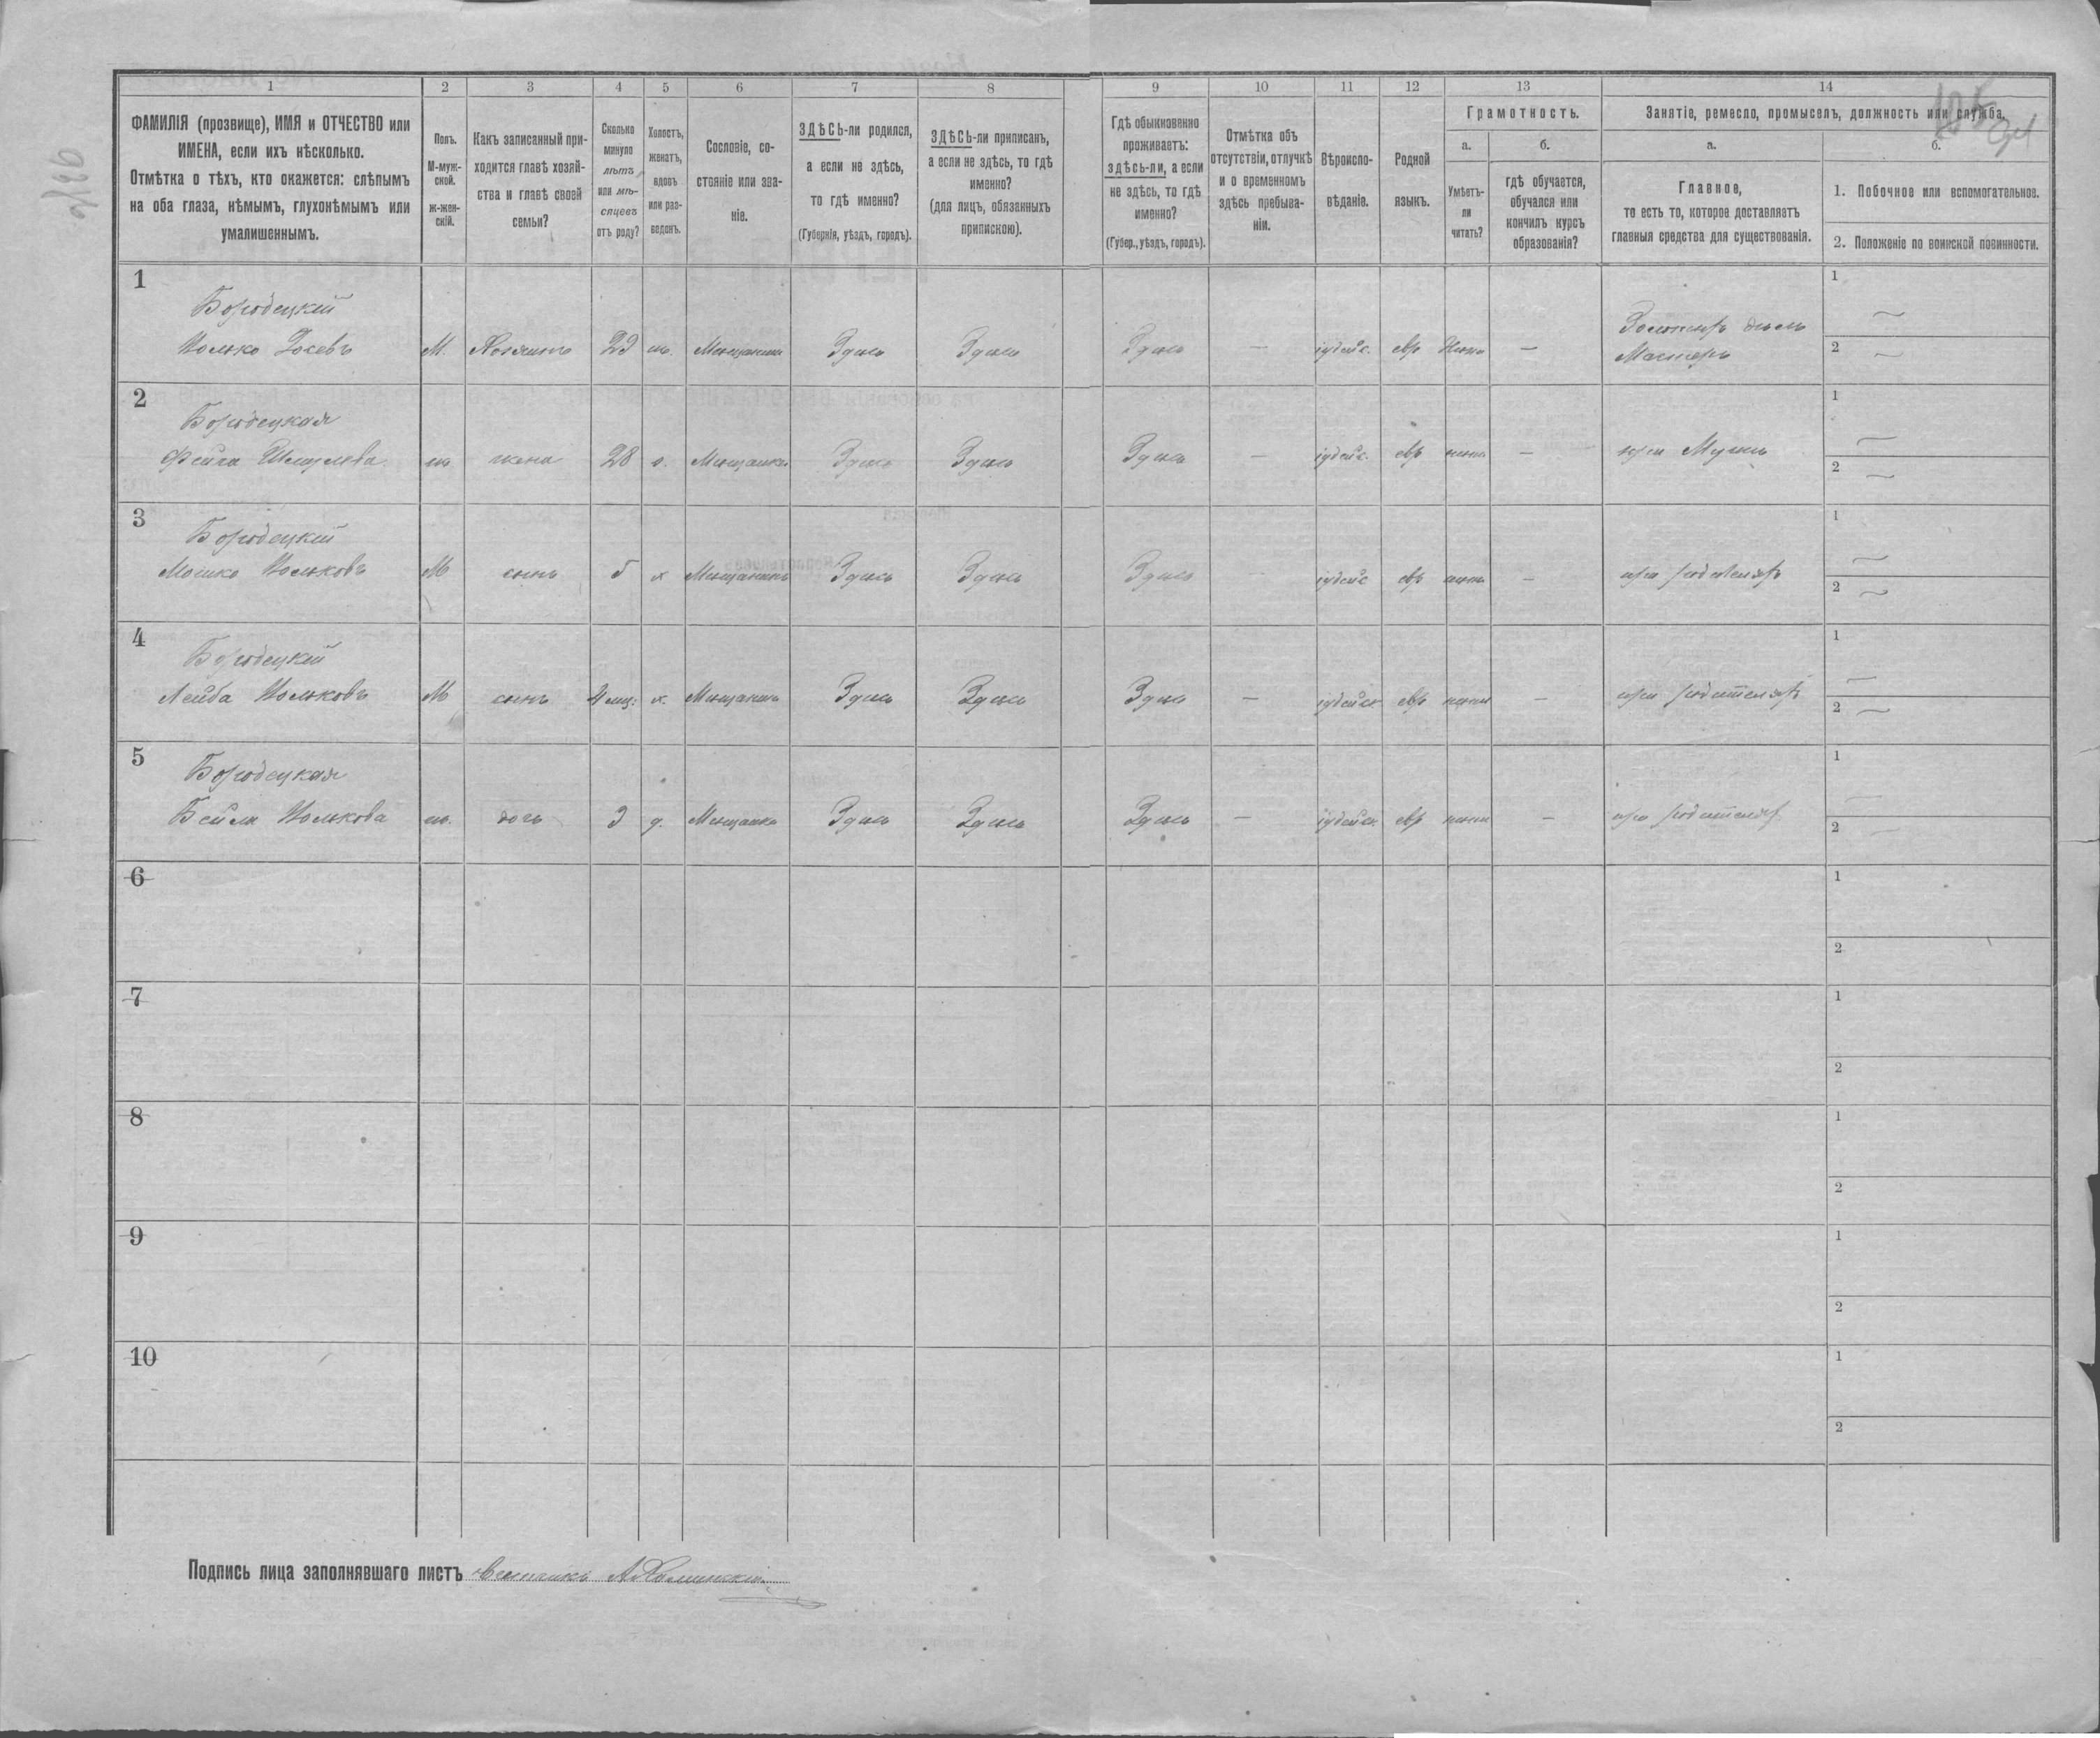 1 2 3 4 5 6 7 8 9 10 11 12 13 14
ФАМИЛІЯ (прозвище), ИМЯ и ОТЧЕСТВО или
ИМЕНА, если ихъ нѣсколько.
Отмѣтка о тѣхъ, кто окажется: слѣпымъ
на оба глаза, нѣмымъ, глухонѣмымъ или
умалишеннымъ.
Полъ.
М-муж-
ской.
ж-жен-
скій.
Какъ записанный при-
ходится главѣ хозяй-
ства и главѣ своей
семьи?
Сколько
минуло
лѣтъ
или мѣ-
сяцевъ
отъ роду?
Холостъ,
женатъ,
вдовъ
или раз-
веденъ.
Сословіе, со-
стояніе или зва-
ніе.
ЗДѢСЬ-ли родился,
а если не здѣсь,
то гдѣ именно?
(Губернія, уѣздъ, городъ).
ЗДѢСЬ-ли приписанъ,
а если не здѣсь, то гдѣ
именно?
(для лицъ, обязанныхъ
припискою).
Гдѣ обыкновенно
проживаетъ:
здѣсь-ли, а если
не здѣсь, то гдѣ
именно?
(Губер., уѣздъ, городъ).
Отмѣтка объ
отсутствіи, отлучкѣ
и о временномъ
здѣсь пребыва-
ніи.
Вѣроиспо-
вѣданіе.
Родной
языкъ.
Грамотность.
а.
Умѣетъ-
ли
читать?
б.
гдѣ обучается,
обучался или
кончилъ курсъ
образованія?
Занятіе, ремесло, промыселъ, должность или служба.
а.
Главное,
то есть то, которое доставляетъ
главныя средства для существованія.
б.
1. Побочное или вспомогательное.
2. Положеніе по воинской повинности.
1
Бородецкій
М. Хозяинъ 29 Мещанинъ Здѣсь Здѣсь Здѣсь — іудейс. евр —
Мастеръ
1
2
2
Бородецкая
Фейга жена 28 Мещанка Здѣсь Здѣсь Здѣсь — іудейс. евр — при Мужѣ
1
2
3
Бородецкій
Мошко Іольковъ М сынъ 5 х Мещанинъ Здѣсь Здѣсь Здѣсь іудейс евр — при родителяхъ
1
2
4
Бородецкій
Лейба Іольковъ М сынъ 4 мѣс. х. Мещанинъ Здѣсь Здѣсь Здѣсь — іудейск евр — при родителяхъ
1
2
5
Бородецкая
Бейла Іолькова дочь 3 д. Мещанка Здѣсь Здѣсь Здѣсь — іудейск евр — при родителяхъ
1
2
6
1
2
7
1
2
8
1
2
9
1
2
10
1
2
Подпись лица заполнявшаго листъ